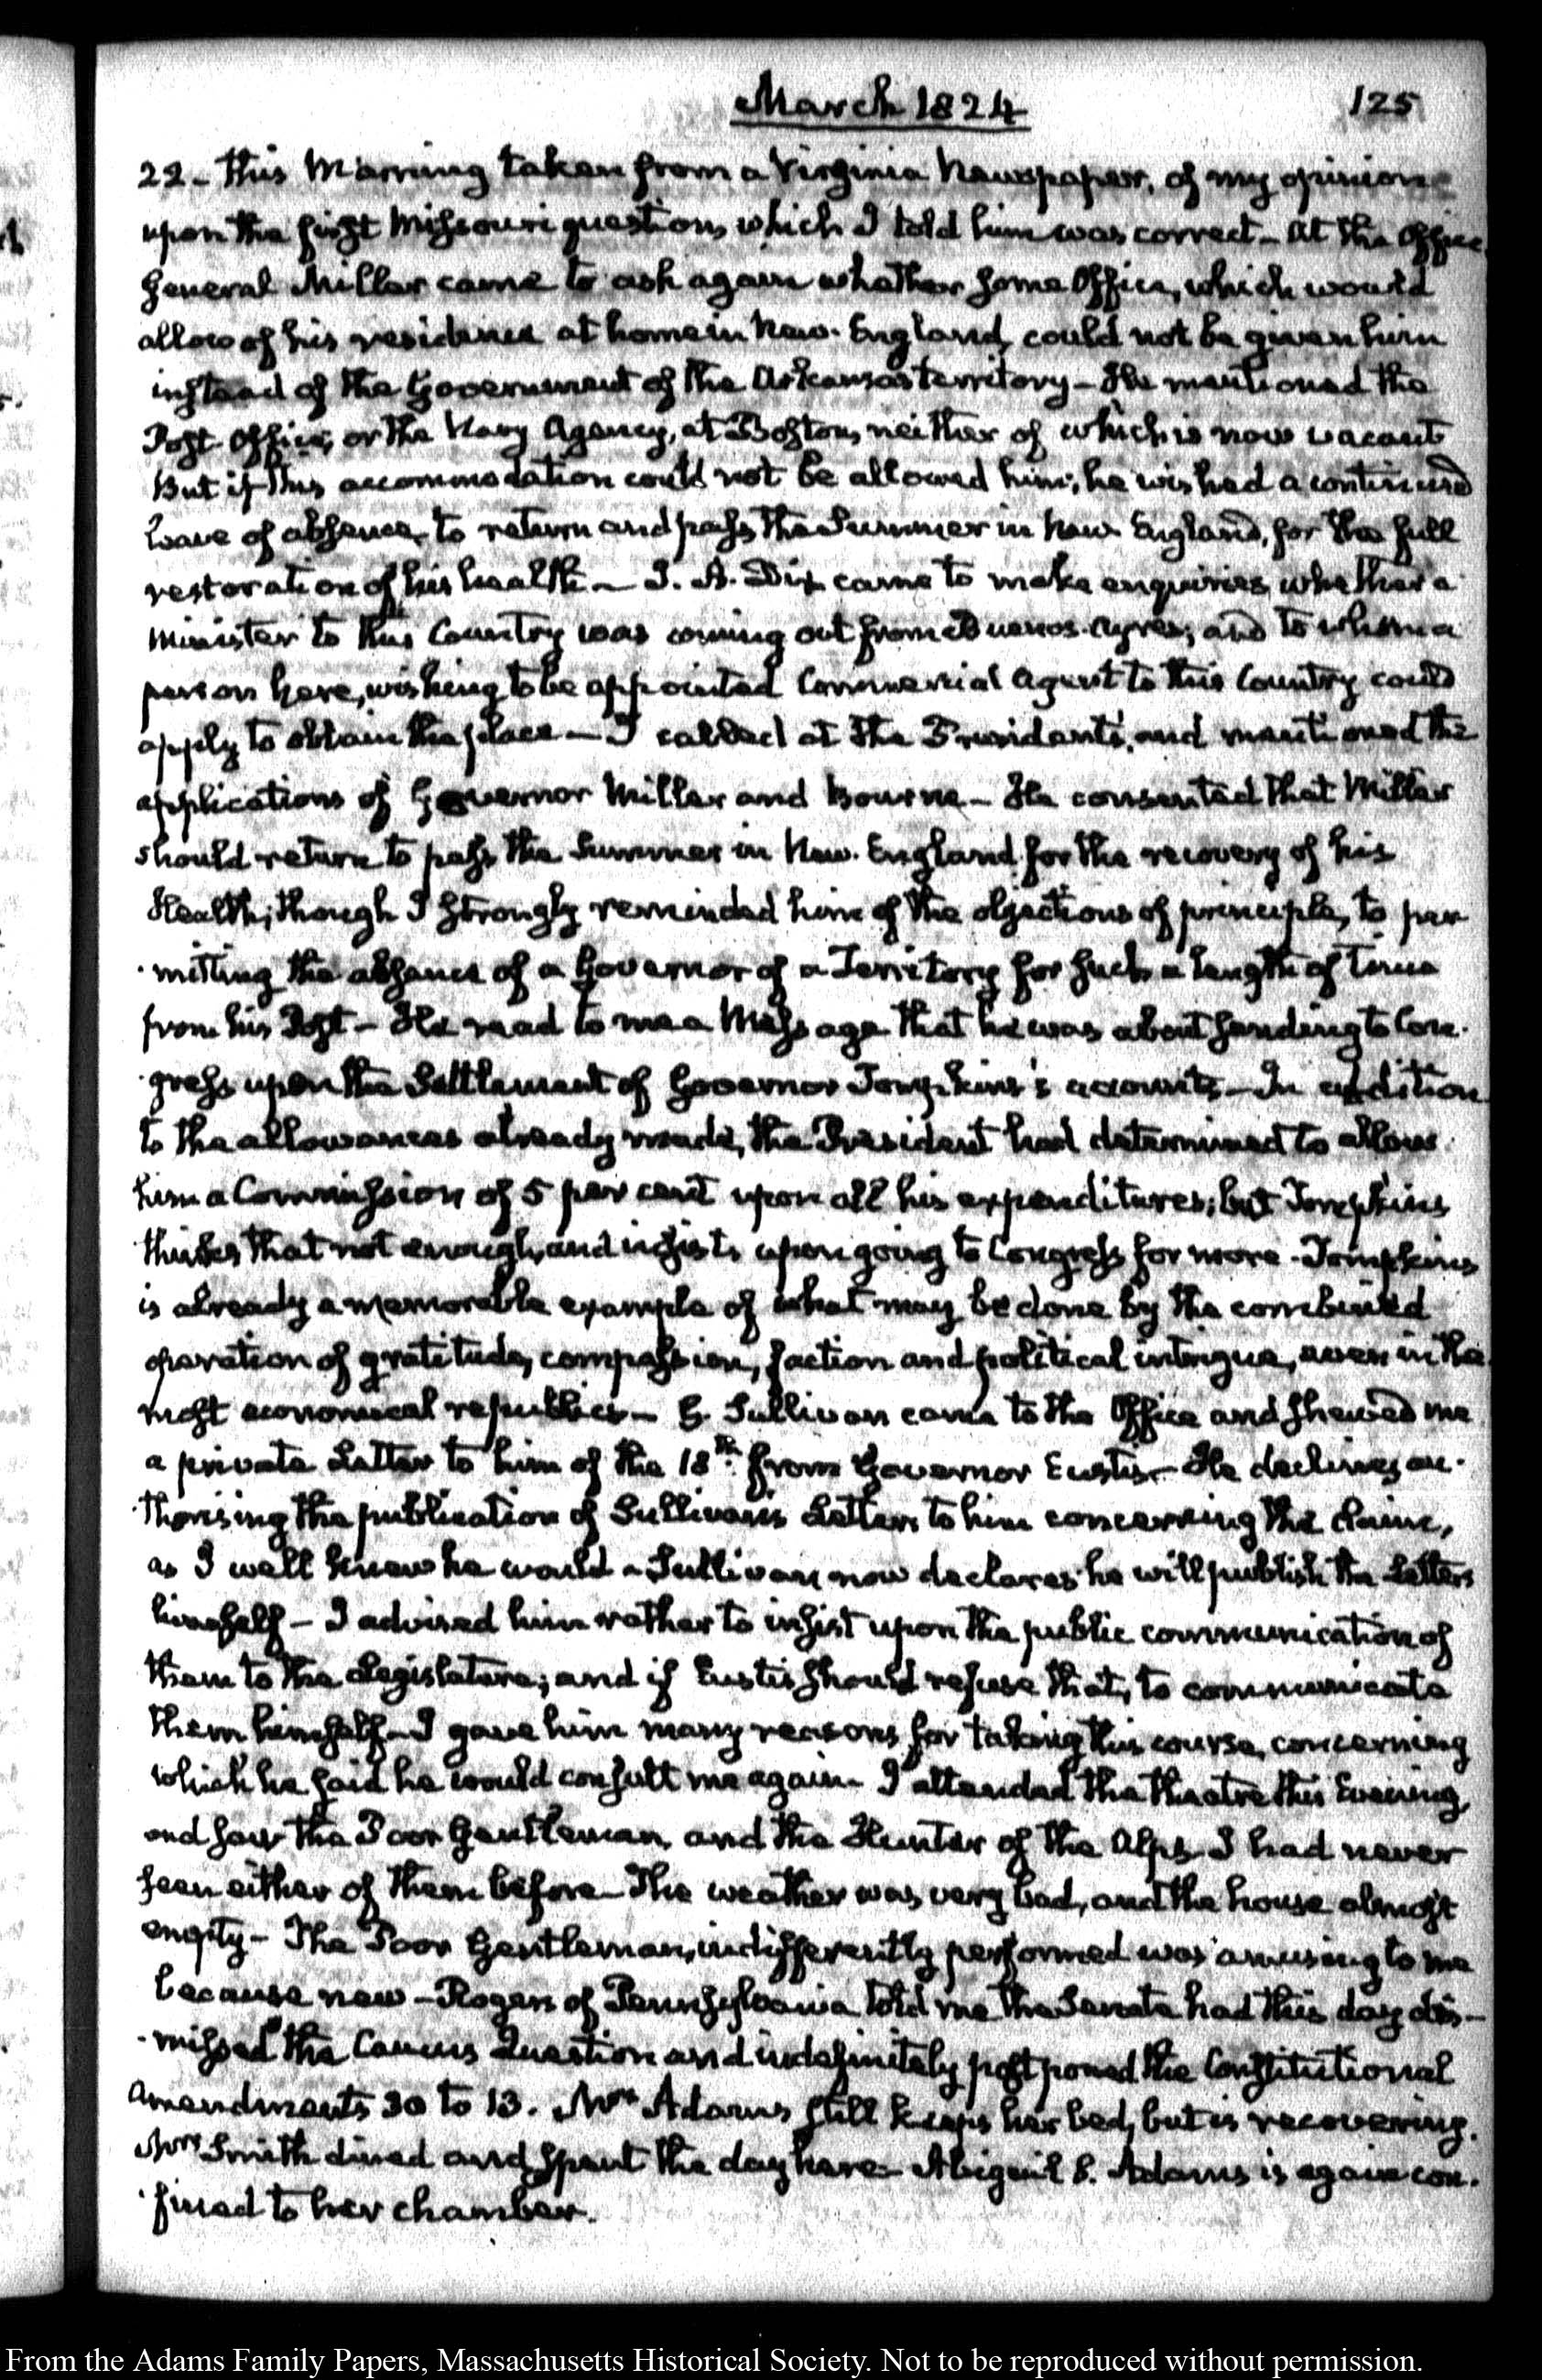 March 1824
125
22- this Morning taken from a Virginia Newspaper, of my opinions
upon the first Missouri question, which I told him was correct- At the Office
General Miller came to ask again whether some Office, which would
allow of his residence at home in New-England, could not be given him
instead of the Government of the Arkansas territory- He mentioned the
Post Office, or the Navy Agency, at Boston, neither of which is now vacant
But if this accommodation could not be allowed him, he wished a continued
leave of absence, to return and pass the Summer in New England, for the full
restoration of his health- J. A. Dix came to make enquiries whether a
Minister to this Country was coming out from Buenos-Ayres; and to whom a
person here, wishing to be appointed Commercial Agent to this Country could
apply to obtain the place- I called at the President's, and mentioned the
applications of Governor Miller and Bourne- He consented that Miller
should return to pass the Summer in New-England for the recovery of his
Health; though I strongly reminded him of the objections of principle, to per
-mitting the absence of a Governor of a Territory for such a length of time
from his Post- He read to me a Message that he was about sending to Con-
-gress upon the Settlement of Governor Tompkins's accounts- In addition
to the allowances already made, the President had determined to allow
him a Commission of 5 per cent upon all his expenditures; but Tompkins
thinks that not enough, and insists upon going to Congress for more- Tompkins
is already a memorable example of what may be done by the combined
operation of gratitude, compassion, faction and political intrigue, even in the
most economical republics- G. Sullivan came to the Office and shewed me
a private Letter to him of the 18th. from Governor Eustis- He declines au-
-thorising the publication of Sullivan's Letters to him concerning the claim,
as I well knew he would- Sullivan now declares he will publish the Letters
himself- I advised him rather to insist upon the public communication of
them to the Legislature; and if Eustis should refuse that, to communicate
them himself- I gave him many reasons for taking this course, concerning
which he said he would consult me again- I attended the theatre this Evening,
and saw the Poor Gentleman, and the Hunter of the Alps- I had never
seen either of them before- The weather was very bad, and the house almost
empty- The Poor Gentleman, indifferently performed was amusing to me
because new- Rogers of Pennsylvania told me the Senate had this day dis-
-missed the Caucus Question and indefinitely postponed the Constitutional
Amendments 30 to 13. Mrs Adams still keeps her bed, but is recovering.
Mrs Smith dined and spent the day here- Abigail S. Adams is again con-
-fined to her chamber.
From the Adams Family Papers, Massachusetts Historical Society. Not to be reproduced without permission.